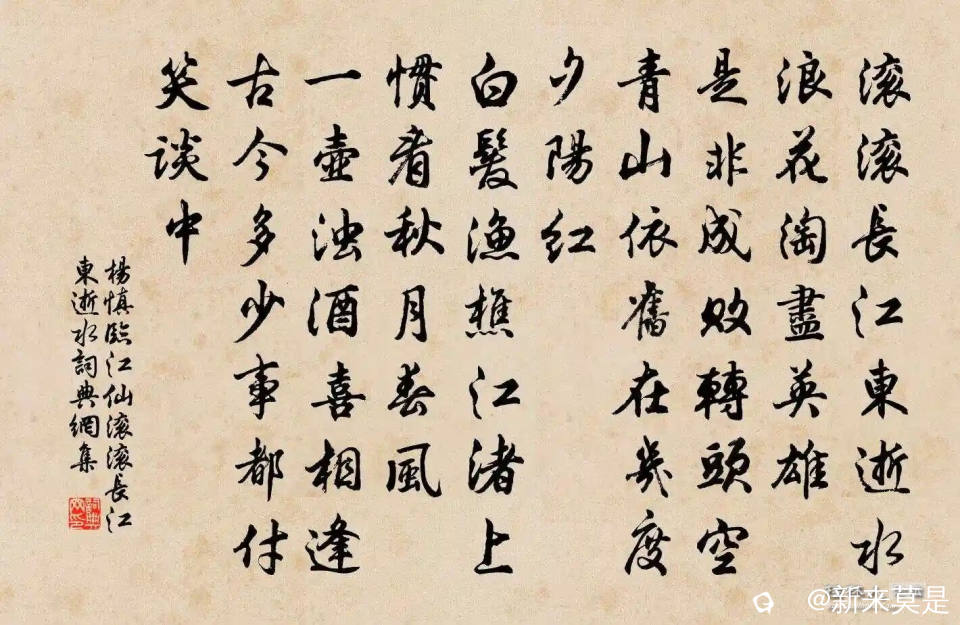 滚滚長江東逝水
浪花淘盡英雄
是非成敗轉頭空
青山依舊在幾度
夕陽紅
白髮漁樵江渚上
慣看秋月春風
一壺濁酒喜相逢
古今多少事都付
笑談中
楊慎臨江仙滚滚長江
東逝水詞典網集
@新来莫是